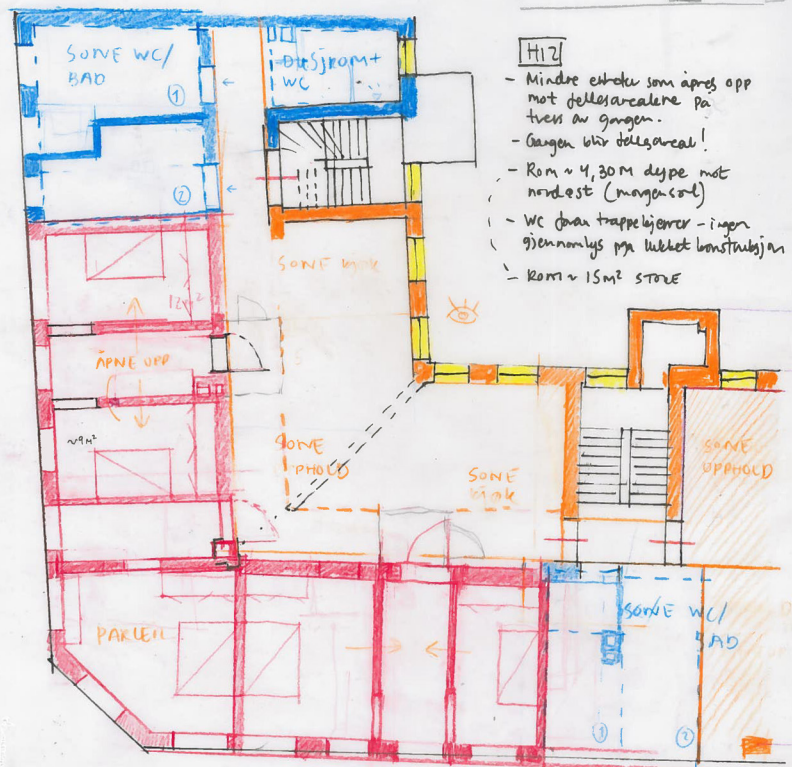 SONE WC/
BAD
1
2
DUSJROM+
WC
H12
- Mindre enheter som åpnes opp
mot fellesarealene på
tvers av gangen.
- Gangen blir fellesareal!
- Rom ~ 4,30M dype mot
nordøst (morgensol)
- WC foran trappekjerner - ingen
gjennomlys pga lukket konstruksjon
- ROM ~ 15m² STORE
SONE KJØK
12m²
ÅPNE OPP
~9m²
SONE
OPPHOLD
SONE
KJØK
SONE
OPPHOLD
PARLELL
SONE WC/
BAD
1
2